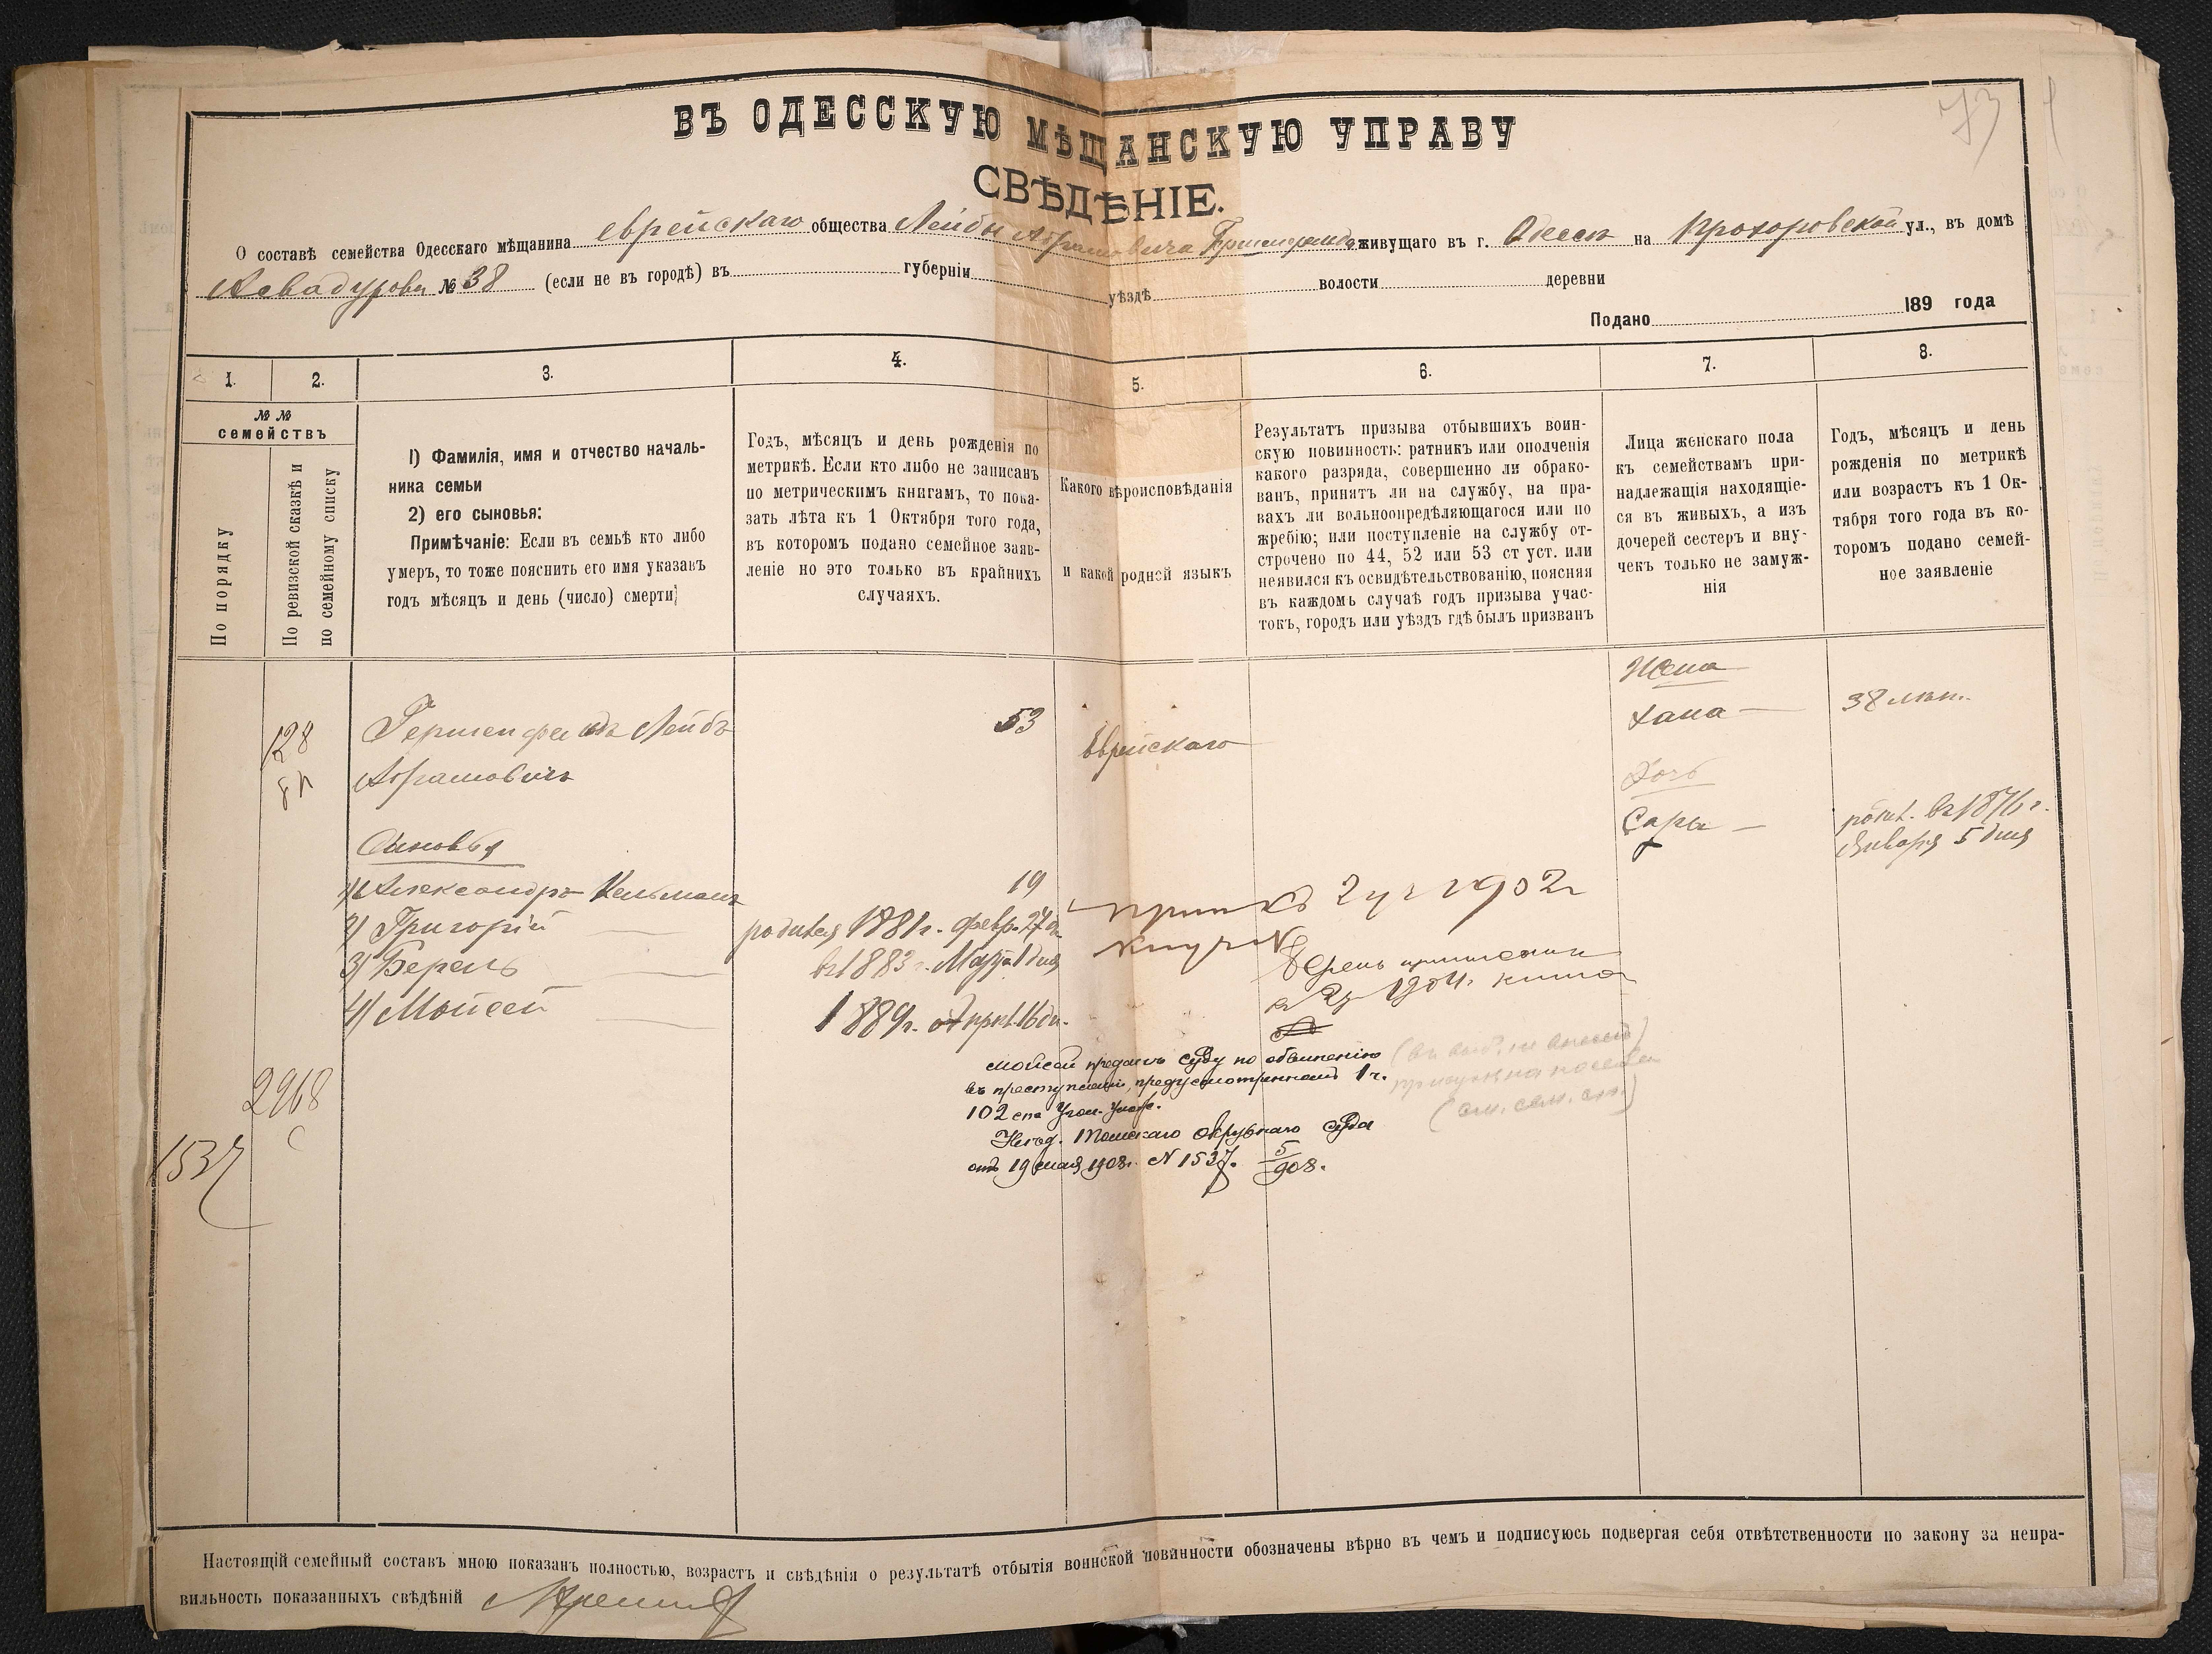 73
ВЪ ОДЕССКУЮ МѢЩАНСКУЮ УПРАВУ
СВѢДѢНІЕ.
О составѣ семейства Одесскаго мѣщанина еврейскаго общества Лейбы Абрамовича живущаго въ г. Одессѣ на Прохоровской ул., въ домѣ
Асвадурова № 38 (если не въ городѣ) въ губерніи уѣздѣ волости деревни
Подано 189 года
1.
2.
3.
4.
5.
6.
7.
8.
№ №
семействъ
По порядку
По ревизской сказкѣ и
по семейному списку
1) Фамилія, имя и отчество началь-
ника семьи
2) его сыновья:
Примѣчаніе: Если въ семьѣ кто либо
умеръ, то тоже пояснить его имя указавъ
годъ мѣсяцъ и день (число) смерти;
Годъ, мѣсяцъ и день рожденія по
метрикѣ. Если кто либо не записанъ
по метрическимъ книгамъ, то пока-
зать лѣта къ 1 Октября того года,
въ которомъ подано семейное заяв-
леніе но это только въ крайнихъ
случаяхъ.
Какого вѣроисповѣданія
и какой родной языкъ
Результатъ призыва отбывшихъ воин-
скую повинность: ратникъ или ополченія
какого разряда, совершенно ли обрако-
ванъ, принятъ ли на службу, на пра-
вахъ ли вольноопредѣляющагося или по
жребію; или поступленіе на службу от-
строчено по 44, 52 или 53 ст уст. или
неявился къ освидѣтельствованію, поясняя
въ каждомъ случаѣ годъ призыва учас-
токъ, городъ или уѣздъ гдѣ былъ призванъ
Лица женскаго пола
къ семействамъ при-
надлежащія находящіе-
ся въ живыхъ, а изъ
дочерей сестеръ и вну-
чекъ только не замуж-
нія
Годъ, мѣсяцъ и день
рожденія по метрикѣ
или возрастъ къ 1 Ок-
тября того года въ ко-
торомъ подано семей-
ное заявленіе
128
Гершенфельдъ Лейбъ
Абрамовичъ
53
Еврейскаго
Жена
Хана
38 лѣт.
Дочь
Сара
родил. въ 1876 г.
Января 5 дня
Сыновья
1) Александръ Кельманъ 19
2) Григорій родился 1881 г. февр. 27 дн.
3) Берель въ 1883 г. Марта 1 дня
4) Мойсей 1889 г. апрѣл. 16 дн.
2 уч 1902 г
Берель приписанъ
къ 2 уч 1904 г.
Мойсей преданъ суду по обвиненію
въ преступленіи, предусмотренномъ 1 ч.
102 ст Угол. Улож.
Томскаго Окружнаго Суда
отъ 19 мая 1908 г. N 1537. 5/908.
(см. сем. сп.)
2968
с
1537
Настоящій семейный составъ мною показанъ полностью, возрастъ и свѣдѣнія о результатѣ отбытія воинской повинности обозначены вѣрно въ чемъ и подписуюсь подвергая себя отвѣтственности по закону за непра-
вильность показанныхъ свѣдѣній